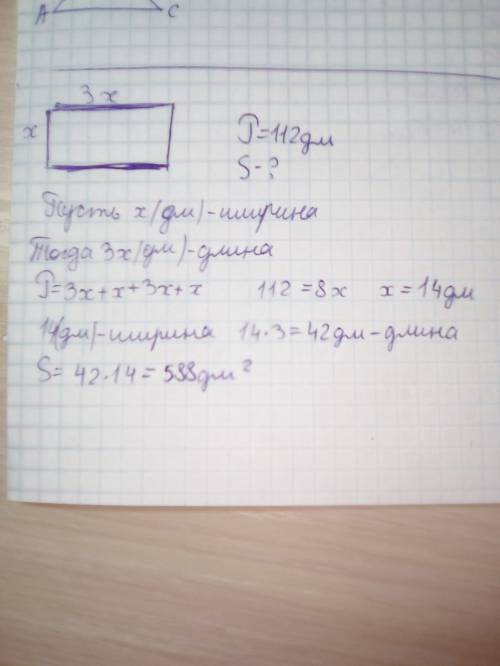 A C
3x
x
P=112дм
S-?
Пусть x(дм)-ширина
Тогда 3x(дм)-длина
P=3x+x+3x+x 112=8x x=14дм
14(дм)-ширина 14·3=42дм-длина
S= 42·14=588дм²